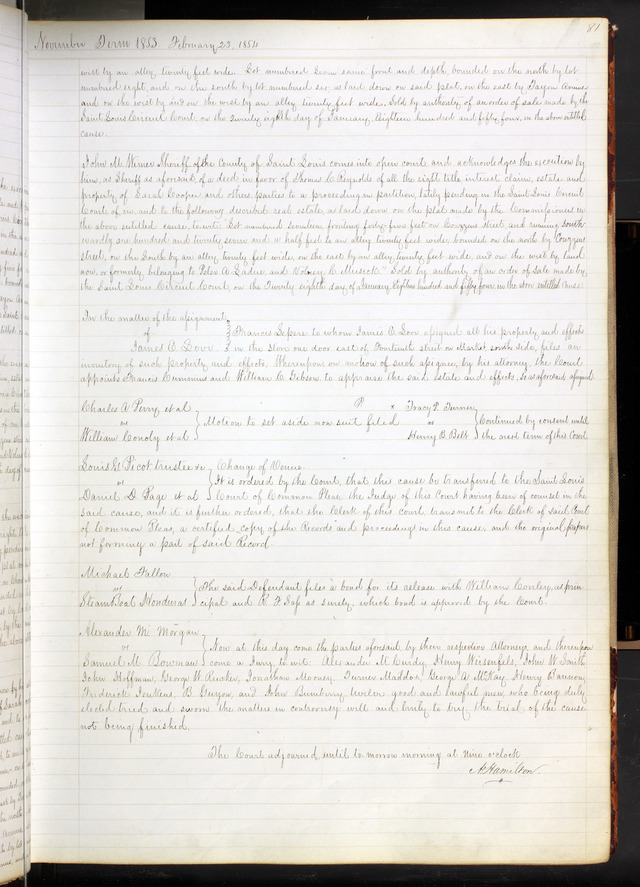 81
November Term 1853. February 23, 1854
west by an alley, twenty feet wide. Lot numbered seven same front and depth, bounded on the north by lot
numbered eight, and on the south by lot numbered six, as laid down on said plat, on the east by Tayon Avenue
and on the west by and on the west by an alley twenty feet wide, Sold by authority of an order of sale made by the
Saint Louis Circuit Court on the Twenty eighth day of January, Eighteen hundred and fifty four, in the above entitled
cause.
John M. Wimer Sheriff of the County of Saint Louis comes into open court and acknowledges the execution by
him, as Sheriff as aforesaid, of a deed in favor of Thomas C. Reynolds of all the right title interest claim, estate and
property of Sarah Cooper and others, parties to a proceeding in partition, lately pending in the Saint Louis Circuit
Court of in, and to the following described real estate, as laid down on the plat made by the Commissioners in
the above entitled cause, to wit: Lot numbered seventeen fronting forty-five feet on Couzzens street, and running south-
wardly one hundred and twenty seven and a half feet to an alley twenty feet wide, bounded on the north by Couzzens
street, on the South by an alley, twenty feet wide, on the east by an alley, twenty feet wide, and on the west by land
now, or formerly belonging to Peter A. Ladue, and Volney C. Musick" Sold by authority of an order of sale made by
the Saint Louis Circuit Court, on the Twenty eighth day of January Eighteen hundred and fifty four in the above entitled cause.
In the matter of the assignment
of Frances Lepere to whom James O. Dorr assigned all his property and effects
James O. Dorr in the store one door east of Fourteenth street on Market, south side, files an
inventory of such property and effects, Whereupon on motion of such assignee, by his attorney, the Court
appoints Francis Cummins and William C. Gibson to appraise the said estate and effects, so as aforesaid assigned.
Charles A Perry et al P x Tracy P. Turner
vs Motion to set aside non suit filed vs Continued by consent until
William Conoly et al Henry B. Belt the next term of this Court
Louis G. Picot trustee &c Change of Venue.
vs It is ordered by the Court, that this cause be transferred to the Saint Louis
Daniel D. Page et al Court of Common Pleas the Judge of this Court having been of counsel in the
said cause, and it is further ordered, that the Clerk of this court, transmit to the Clerk of said Court
of Common Pleas, a certified copy of the Records and proceedings in this cause, and the original papers
not forming a part of said Record.
Michael Fallon
vs The said Defendant files a bond for its release with William Conley as prin
Steam Boat Honduras cipal and as surety, which bond is approved by the Court.
Alexander M. Morgan
vs Now at this day come the parties aforesaid by their respective Attorneys and thereupon
Samuel M. Bowman come a Jury to wit: Alexander McCurdy, Henry Weisenfels, John W. Smith
John Hoffman, George W. Jonathan Mooney, Turner Maddox, George A. McKay, Henry
Frederick Jenkins, B. and John twelve good and lawful men who being duly
elected tried and sworn the matters in controversy well and truly to try, the trial of the cause
not being finished.
The Court adjourned until to morrow morning at nine o'clock
A. Hamilton.